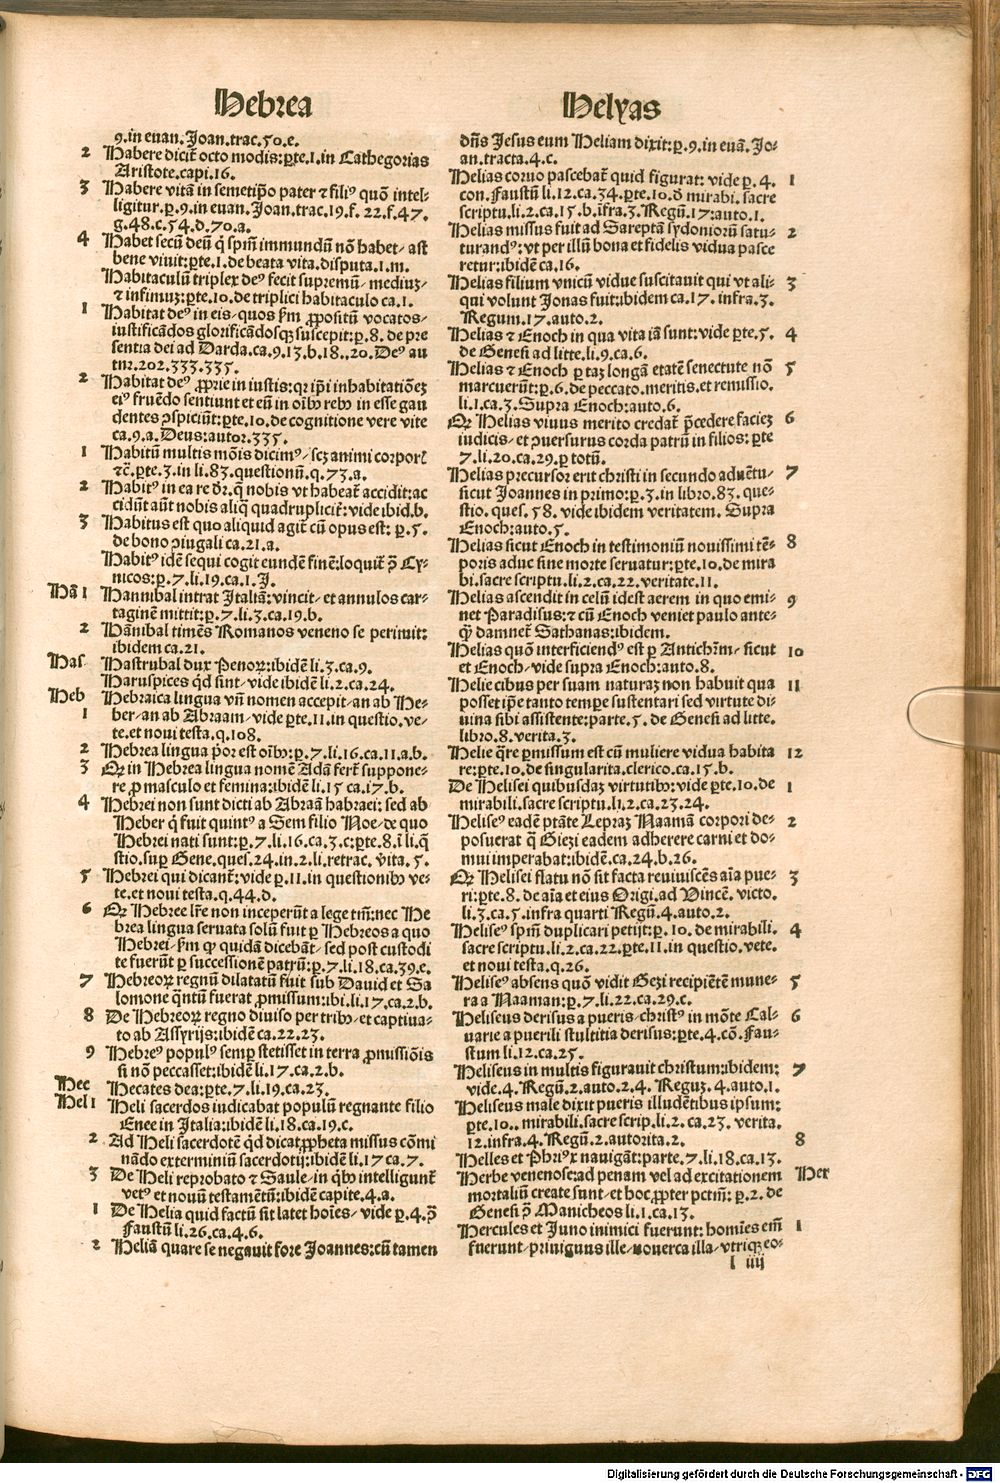 Hebrea
9.in euan.Joan.trac.50.e.
2 Habere dicit̃ octo modis:ꝑte.1.in Cathegorias
Aristote.capi.16.
3 Habere vitā in semetip̃o pater ⁊ filiꝰ quō intel-
ligitur.p̱.9.in euan.Joan.trac.19.f.22.f.47.
g.48.c.54.d.70.a.
4 Habet secū deū q̇ sp̄m immundū nō habet/ ast
bene viuit:ꝑte.1.de beata vita.disputa.1.m.
Habitaculū triplex deꝰ fecit supremū/ mediuꝫ/
⁊ infimuꝫ:ꝑte.10.de triplici habitaculo ca.1.
1 Habitat deꝰ in eis/quos ẜm ꝓpositū vocatos/
iustificādos glorificādosqꝫ suscepit:p̱.8. de pre
sentia dei ad Darda.ca.9.13.b.18.,20.Deꝰ au
tṅr.202.333.335.
2 Habitat deꝰ ꝓprie in iustis:qꝛ ip̄i inhabitatiōeꝫ
eiꝰ fruēdo sentiunt et eū in oībꝰ rebꝰ in esse gau
dentes ꝯspiciūt:ꝑte.10.de cognitione vere vite
ca.9.a.Deus:autor.335.
1 Habitū multis mōis dicimꝰ/ scꝫ animi corporꝭ
⁊c̄.ꝑte.3.in li.83.questionū.q.73.a.
2 Habitꝰ in ea re dr̄.q̇ nobis vt habeat̃ accidit:ac
cidūt aūt nobis aliq̄ quadruplicit̃:vide ibid.b.
3 Habitus est quo aliquid agit̃ cū opus est: p̱.5.
de bono ꝯiugali ca.21.a.
Habitꝰ idē sequi cogit eundē finē:loquit̃ ꝯ̄ Cy-
nicos:p̱.7.li.19.ca.1.J.
Hā 1 Hannibal intrat Italiā:vincit/ et annulos car-
taginē mittit:p̱.7.li.3.ca.19.b.
2 Hānibal timēs Romanos veneno se perimit:
ibidem ca.21.
Has Hastrubal dux Penoꝝ:ibidē li.3.ca.9.
Haruspices qd̄ sint/vide ibidē li.2.ca.24.
Heb Hebraica lingua vn̄ nomen accepit/an ab He-
1 ber/an ab Abraam/vide ꝑte.11.in questio.ve-
te.et noui testa.q.108.
2 Hebrea lingua p̄or est oībꝰ:p̱.7.li.16.ca.11.a.b.
3 Qꝛ in Hebrea lingua nomē Adā fert̃ suppone-
re ꝓ masculo et femina:ibidē li.15 ca.17.b.
4 Hebrei non sunt dicti ab Abraā habraei: sed ab
Heber q̇ fuit quintꝰ a Sem filio Noe/de quo
Hebrei nati sunt:p̱.7.li.16.ca.3.c:ꝑte.8.ī li.q̄
stio.suꝑ Gene.ques.24.in.2.li.retrac. v̄ita. 5.
5 Hebrei qui dicant̃: vide p̱.11.in questionibꝰ ve-
te.et noui testa.q.44.d.
6 Qꝛ Hebree lr̄e non inceperūt a lege tm̄:nec He
brea lingua seruata solū fuit ꝑ Hebreos a quo
Hebrei/ẜm qꝫ quidā dicebāt/ sed post custodi
te fuerūt ꝑ successionē patrū:p̱.7.li.18.ca.39.e.
7 Hebreoꝝ regnū dilatatū fuit sub Dauid et Sa
lomone q̄ntū fuerat ꝓmissum:ibi.li.17.ca.2.b.
8 De Hebreoꝝ regno diuiso per tribꝰ/et captiua-
to ab Assyrijs:ibidē ca.22.23.
9 Hebreꝰ populꝰ semꝑ stetisset in terra ꝓmissiōis
si nō peccasset:ibidē li.17.ca.2.b.
Hec Hecates dea:ꝑte.7.li.19.ca.23.
Hel 1 Heli sacerdos iudicabat populū regnante filio
Enee in Italia:ibidē li.18.ca.19.c.
2 Ad Heli sacerdotē qd̄ dicat ꝓpheta missus cōmi
nādo exterminiū sacerdotij:ibidē li.17 ca.7.
3 De Heli reprobato ⁊ Saule/in q̇bꝰ intelligunt̃
vetꝰ et nouū testamētū:ibidē capite.4.a.
1 De Helia quid factū sit latet hoīes/ vide p̱.4.ꝯ̄
Faustū li.26.ca.4.6.
2 Heliā quare se negauit fore Joannes:cū tamen
Helyas
dn̄s Jesus eum Heliam dixit:p̱.9.in euā.Jo-
an.tracta.4.c.
Helias coruo pascebat̃ quid figurat: vide p̱.4. 1
con.Faustū li.12.ca.34.ꝑte.10.d̄ mirabi.sacre
scriptu.li.2.ca.15.b.īfra.3.Regū.17:auto.1.
Helias missus fuit ad Sareptā sydoniorū satu- 2
turandꝰ:vt per illū bona et fidelis vidua pasce
retur:ibidē ca.16.
Helias filium vnicū vidue suscitauit qui vt ali- 3
qui volunt Jonas fuit:ibidem ca.17. infra.3.
Regum.17.auto.2.
Helias ⁊ Enoch in qua vita iā sunt:vide ꝑte.5. 4
de Genesi ad litte.li.9.ca.6.
Helias ⁊ Enoch ꝑ taꝫ longā etatē senectute nō 5
marcuerūt:p̱.6.de peccato.meritis.et remissio.
li.1.ca.3.Supra Enoch:auto.6.
Qꝛ Helias viuus merito credat̃ p̄cedere facieꝫ 6
iudicis/et ꝯuersurus corda patrū in filios: ꝑte
7.li.20.ca.29.ꝑ totū.
Helias precursor erit christi in secundo aduētu- 7
sicut Joannes in primo:p̱.3.in libro.83. que-
stio. ques. 58. vide ibidem veritatem. Supra
Enoch:auto.5.
Helias sicut Enoch in testimoniū nouissimi tē- 8
poris aduc sine morte seruatur:ꝑte.10.de mira
bi.sacre scriptu.li.2.ca.22.veritate.11.
Helias ascendit in celū idest aerem in quo emi- 9
net Paradisus:⁊ cū Enoch veniet paulo ante-
qꝫ damnet̃ Sathanas:ibidem.
Helias quō interficiendꝰ est ꝑ Antichr̄m/ sicut 10
et Enoch/vide supra Enoch:auto.8.
Helie cibus per suam naturaꝫ non habuit qua 11
posset ip̄e tanto tempe sustentari sed virtute di-
uina sibi assistente:parte.5. de Genesi ad litte.
libro.8.verita.3.
Helie q̄re ꝑmissum est cū muliere vidua habita 12
re:ꝑte.10.de singularita.clerico.ca.15.b.
De Helisei quibusdaꝫ virtutibꝰ:vide ꝑte.10.de 1
mirabili.sacre scriptu.li.2.ca.23.24.
Heliseꝰ eadē ptāte Lepraꝫ Naamā corpori de- 2
posuerat q̄ Giezi eadem adherere carni et do-
mui imperabat:ibidē.ca.24.b.26.
Qꝛ Helisei flatu nō sit facta reuiuiscēs aīa pue- 3
ri:ꝑte.8.de aīa et eius Origi.ad Vincē. victo.
li.3.ca.5.infra quarti Regū.4.auto.2.
Heliseꝰ sp̄m duplicari petijt:p̱.10.de mirabili. 4
sacre scriptu.li.2.ca.22.ꝑte.11.in questio.vete.
et noui testa.q.26.
Heliseꝰ absens quō vidit Gezi recipiētē mune- 5
ra a Naaman:p̱.7.li.22.ca.29.c.
Heliseus derisus a pueris/christꝰ in mōte Cal- 6
uarie a puerili stultitia derisus:ꝑte.4.cō.Fau-
stum li.12.ca.25.
Heliseus in multis figurauit christum:ibidem: 7
vide.4.Regū.2.auto.2.4. Reguꝫ.4.auto.1.
Heliseus male dixit pueris illudētibus ipsum:
ꝑte.10..mirabili.sacre scrip.li.2.ca.23. verita.
12.infra.4.Regū.2.autorita.2. 8
Helles et Phrixꝰ nauigāt:parte.7.li.18.ca.13.
Herbe venenose:ad penam vel ad excitationem Her
mortaliū create sunt/et hoc ꝓpter pctm̄: p̱.2. de
Genesi ꝯ̄ Manicheos li.1.ca.13.
Hercules et Juno inimici fuerunt: homīes em̄ 1
fuerunt/priuignus ille/nouerca illa/vtriqꝫ eo-
l iiij
Digitalisierung gefördert durch die Deutsche Forschungsgemeinschaft - DFG